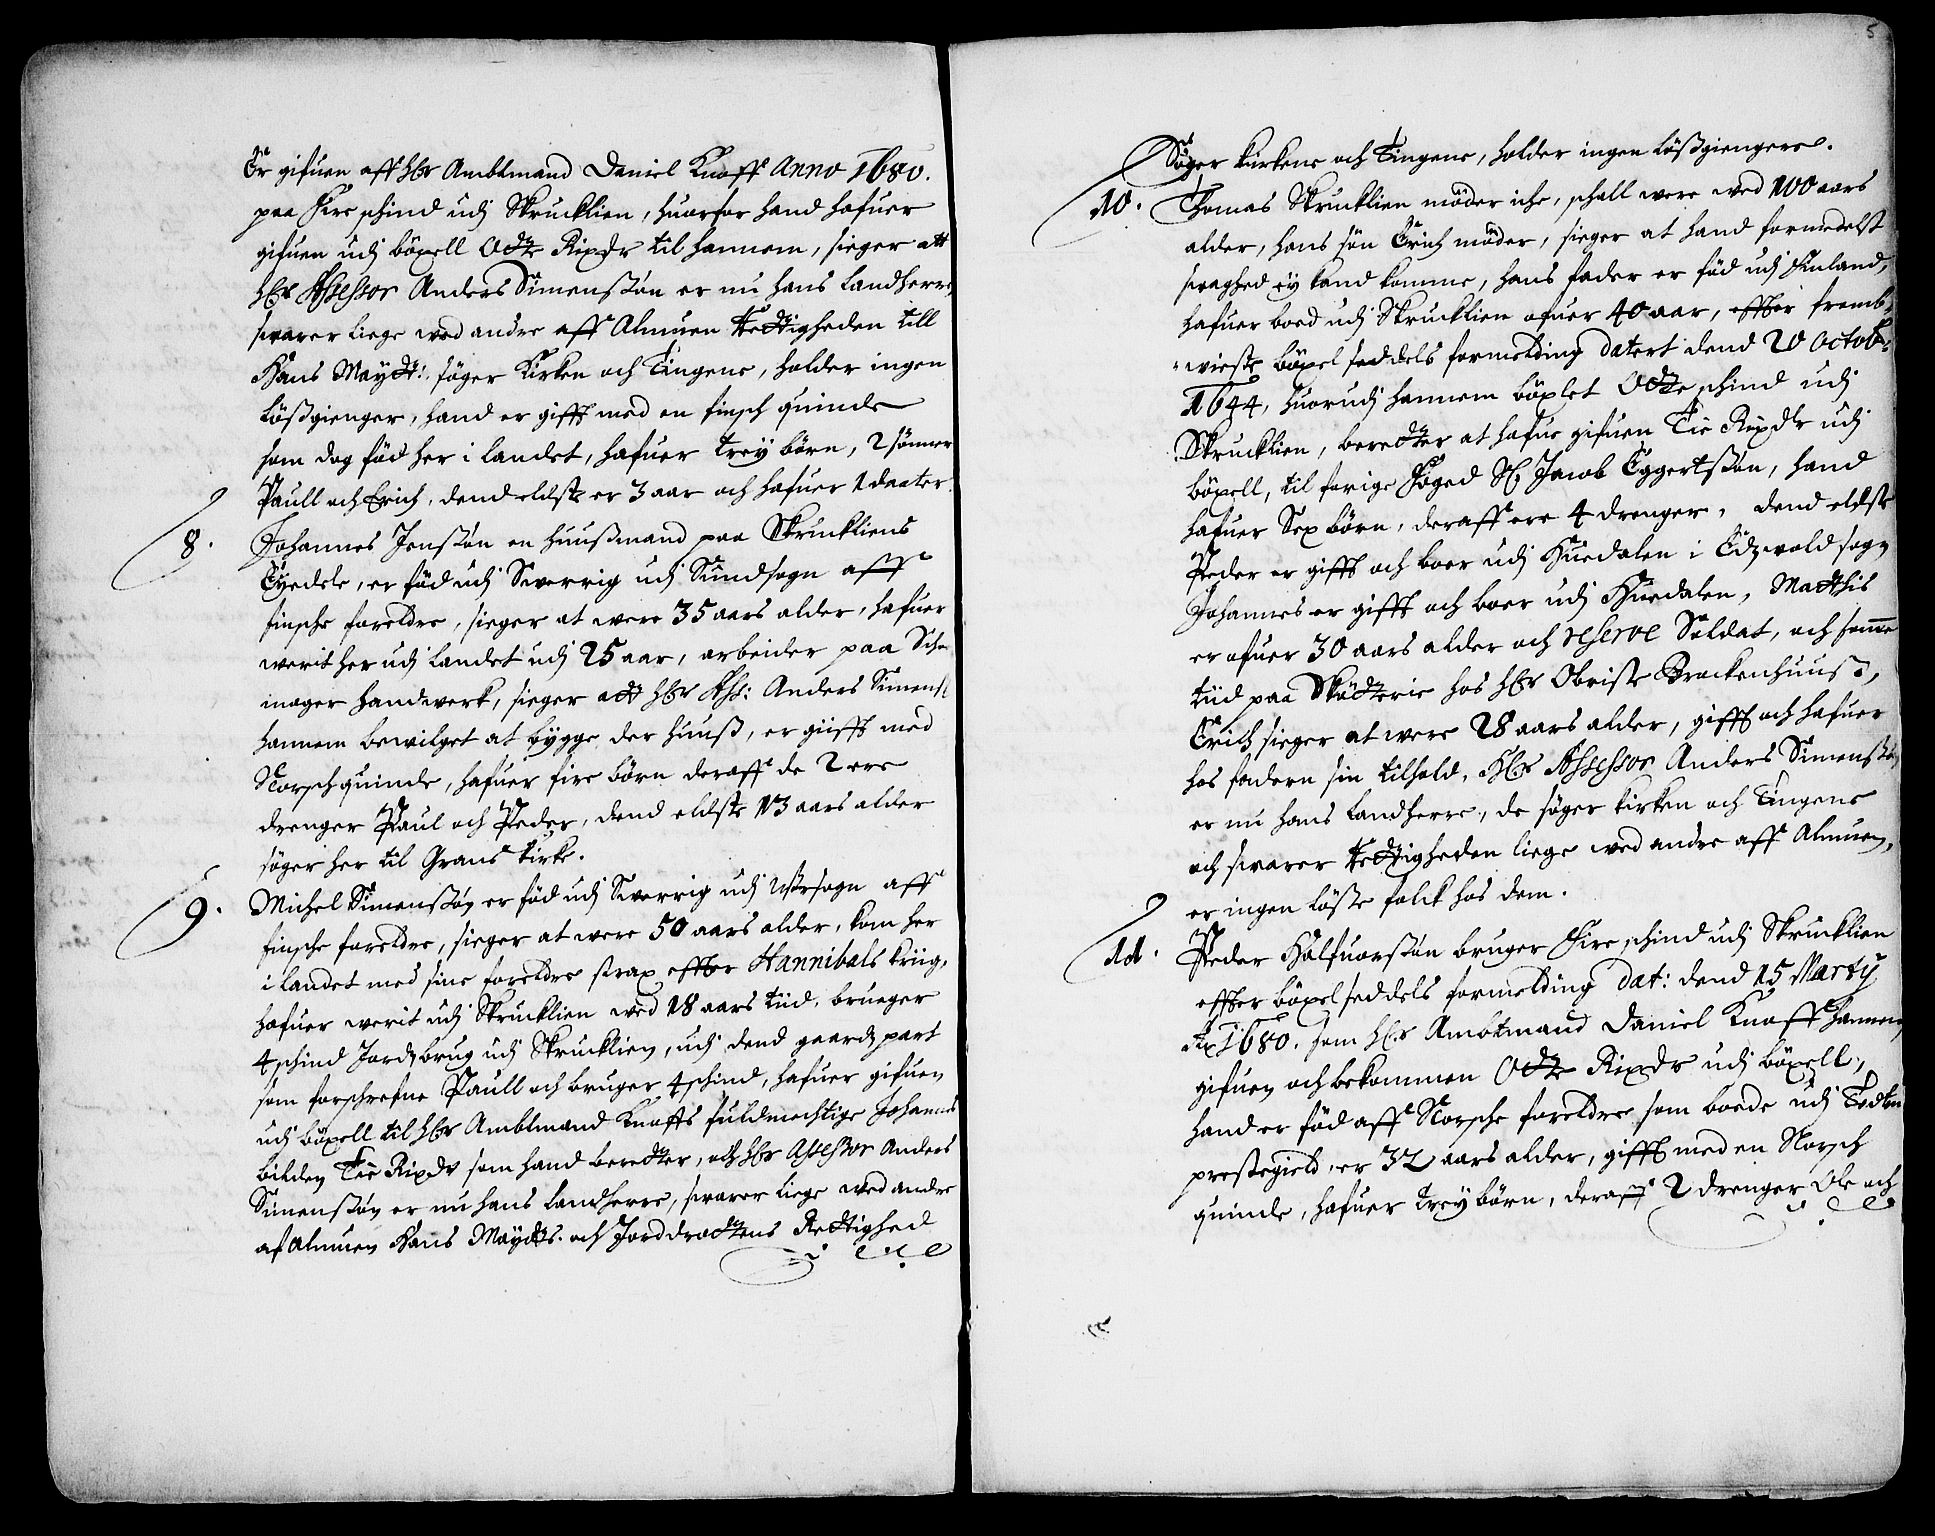 Er gifuen aff hr Ambtmand Daniel Knoff Anno 1680.
paa Fire schind udj Skrucklien, huorfor hand hafuer
gifuen udj böxell Otte Rixdr til hannem, sieger att
hr Assessor Anders Simensøn er nu hans Landherre,
swarer liege wed andre aff Almuen Rettigheden till
Hans Maytt: söger Kirken och Tingene, holder ingen
Lößgienger, hand er gifft med en finsch quinde
som dog föd her i landet, hafuer trey börn, 2 sönner
Paull och Erich, dend eldste er 3 aar och hafuer 1 daater.
8. Johannes Jensøn en huußmand paa Skruckliens
Eyedele, er föd udj Swerrig udj Sundsogn aff
finsche foreldre, sieger at were 35 aars alder, hafuer
werit her udj landet udj 25 aar, arbeider paa Scho
mager handwerk, sieger att hr Ass: Anders Simens:
hannem bewilget at bygge der huuß, er giifft med
Norsch quinde, hafuer fire börn deraff de 2 ere
drenger Paul och Peder, dend eldste 13 aars alder
söger her til Grans kirke.
9. Michel Simensøn er föd udj Swerrig udj sogn aff
finsche foreldre, sieger at were 50 aars alder, kom her
i landet med sine foreldre strax effter Hannibals kriig,
hafuer werit udj Skrucklien wed 18 aars tiid, brueger
4 schind Jords brug udj Skrucklien, udj dend gaards part
som forschrefne Paull och bruger 4 schind, hafuer gifuen
udj böxell til hr Ambtmand Knoffs fuldmechtige Johannes
bilden Tie Rixdr som hand beretter, och hr Assessor Anders
Simensøn er nu hans Landherre, swarer liege wed andre
af Almuen Hans Mayts. och Jorddrottens Rettighed
5
Söger kirkene och Tingene, holder ingen lößgiengere.
10. Thomas Skrucklien möder iche, schall were wed 100 aars
alder, hans sön Erich möder, sieger at hand formedelst
swaghed ey kand komme, hans fader er föd udj Finland,
hafuer boed udj Skrucklien ofuer 40 aar, effter fremb-
wieste böxel seddels formelding datert dend 20 Octob:
1644, huorudj hannem böxlet Otte schind udj
Skrucklien, beretter at hafue gifuen Tie Rixdr udj
böxell, til forige Foged Sl Jacob Eggertsøn, hand
hafuer Sex börn, deraff ere 4 drenger, dend eldste
Peder er gifft och boer udj Huedalen i Edzwold sogn
Johannes er gifft och boer udj Huedalen, Matthis
er ofuer 30 aars alder och reserve Soldat, och somme
tiid paa Skötterie hos hr Obriste Brockenhuuß,
Erich sieger at were 28 aars alder, gifft och hafuer
hos fadern sin tilhold, Hr Assessor Anders Simensøn
er nu hans Landherre, de söger kirken och Tingene
och swarer Rettigheden liege wed andre aff Almuen,
er ingen löße folck hos dem.
11. Peder Halfuorsøn bruger Fire schind udj Skrucklien
effter böxel seddels formelding dat: dend 15 Martij
Ao 1680. som hr Ambtmand Daniel Knoff hannem
gifuen och bekommen Otte Rixdr udj böxell,
hand er föd aff Norsche foreldre som boede udj
prestegield, er 32 aars alder, gifft med en Norsch
quinde, hafuer trey börn, deraff 2 drenger Ole och